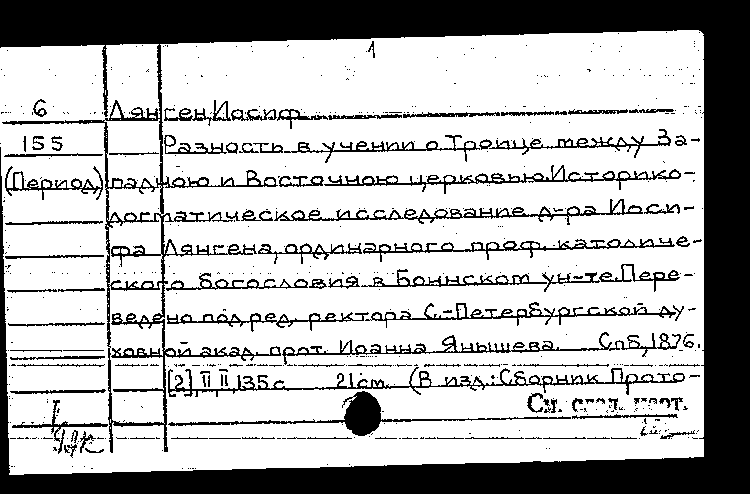 1
6 Лянген, Иосиф
155 Разность в учении о Троице между За-
(Период) падною и Восточною церковью. Историко-
догматическое исследование д-ра Иоси-
фа Лянгена, ординарного проф. католиче-
ского богословия в Боннском ун-те. Пере-
ведено под ред. ректора С.-Петербургской ду-
ховной акад. прот. Иоанна Янышева. Спб, 1876.
[2], II, II, 135 с. 21 см. (В изд.: Сборник Прото-
См. след. карт.